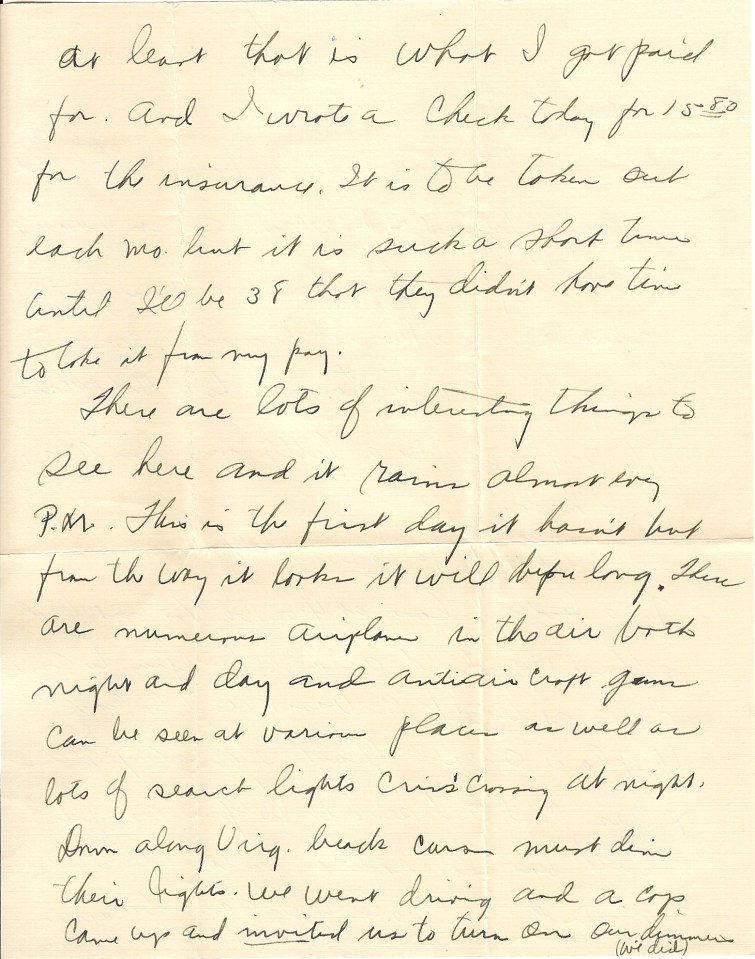 At least that is what I got paid
for. And I wrote a check today for 15 80
for the insurance. It is to be taken out
each mo. but it is such a short time
until I'll be 38 that they didn't have time
to take it from my pay.
There are lots of interesting things to
see here and it rains almost every
P.M. This is the first day it hasn't but
from the way it looks it will before long. There
are numerous airplanes in the air both
night and day and antiaircraft guns
can be seen at various places as well as
lots of search lights criss crossing at night.
Down along Virg. beach cars must dim
their lights. We went driving and a cop
came up and invited us to turn on our dimmers
(we did)